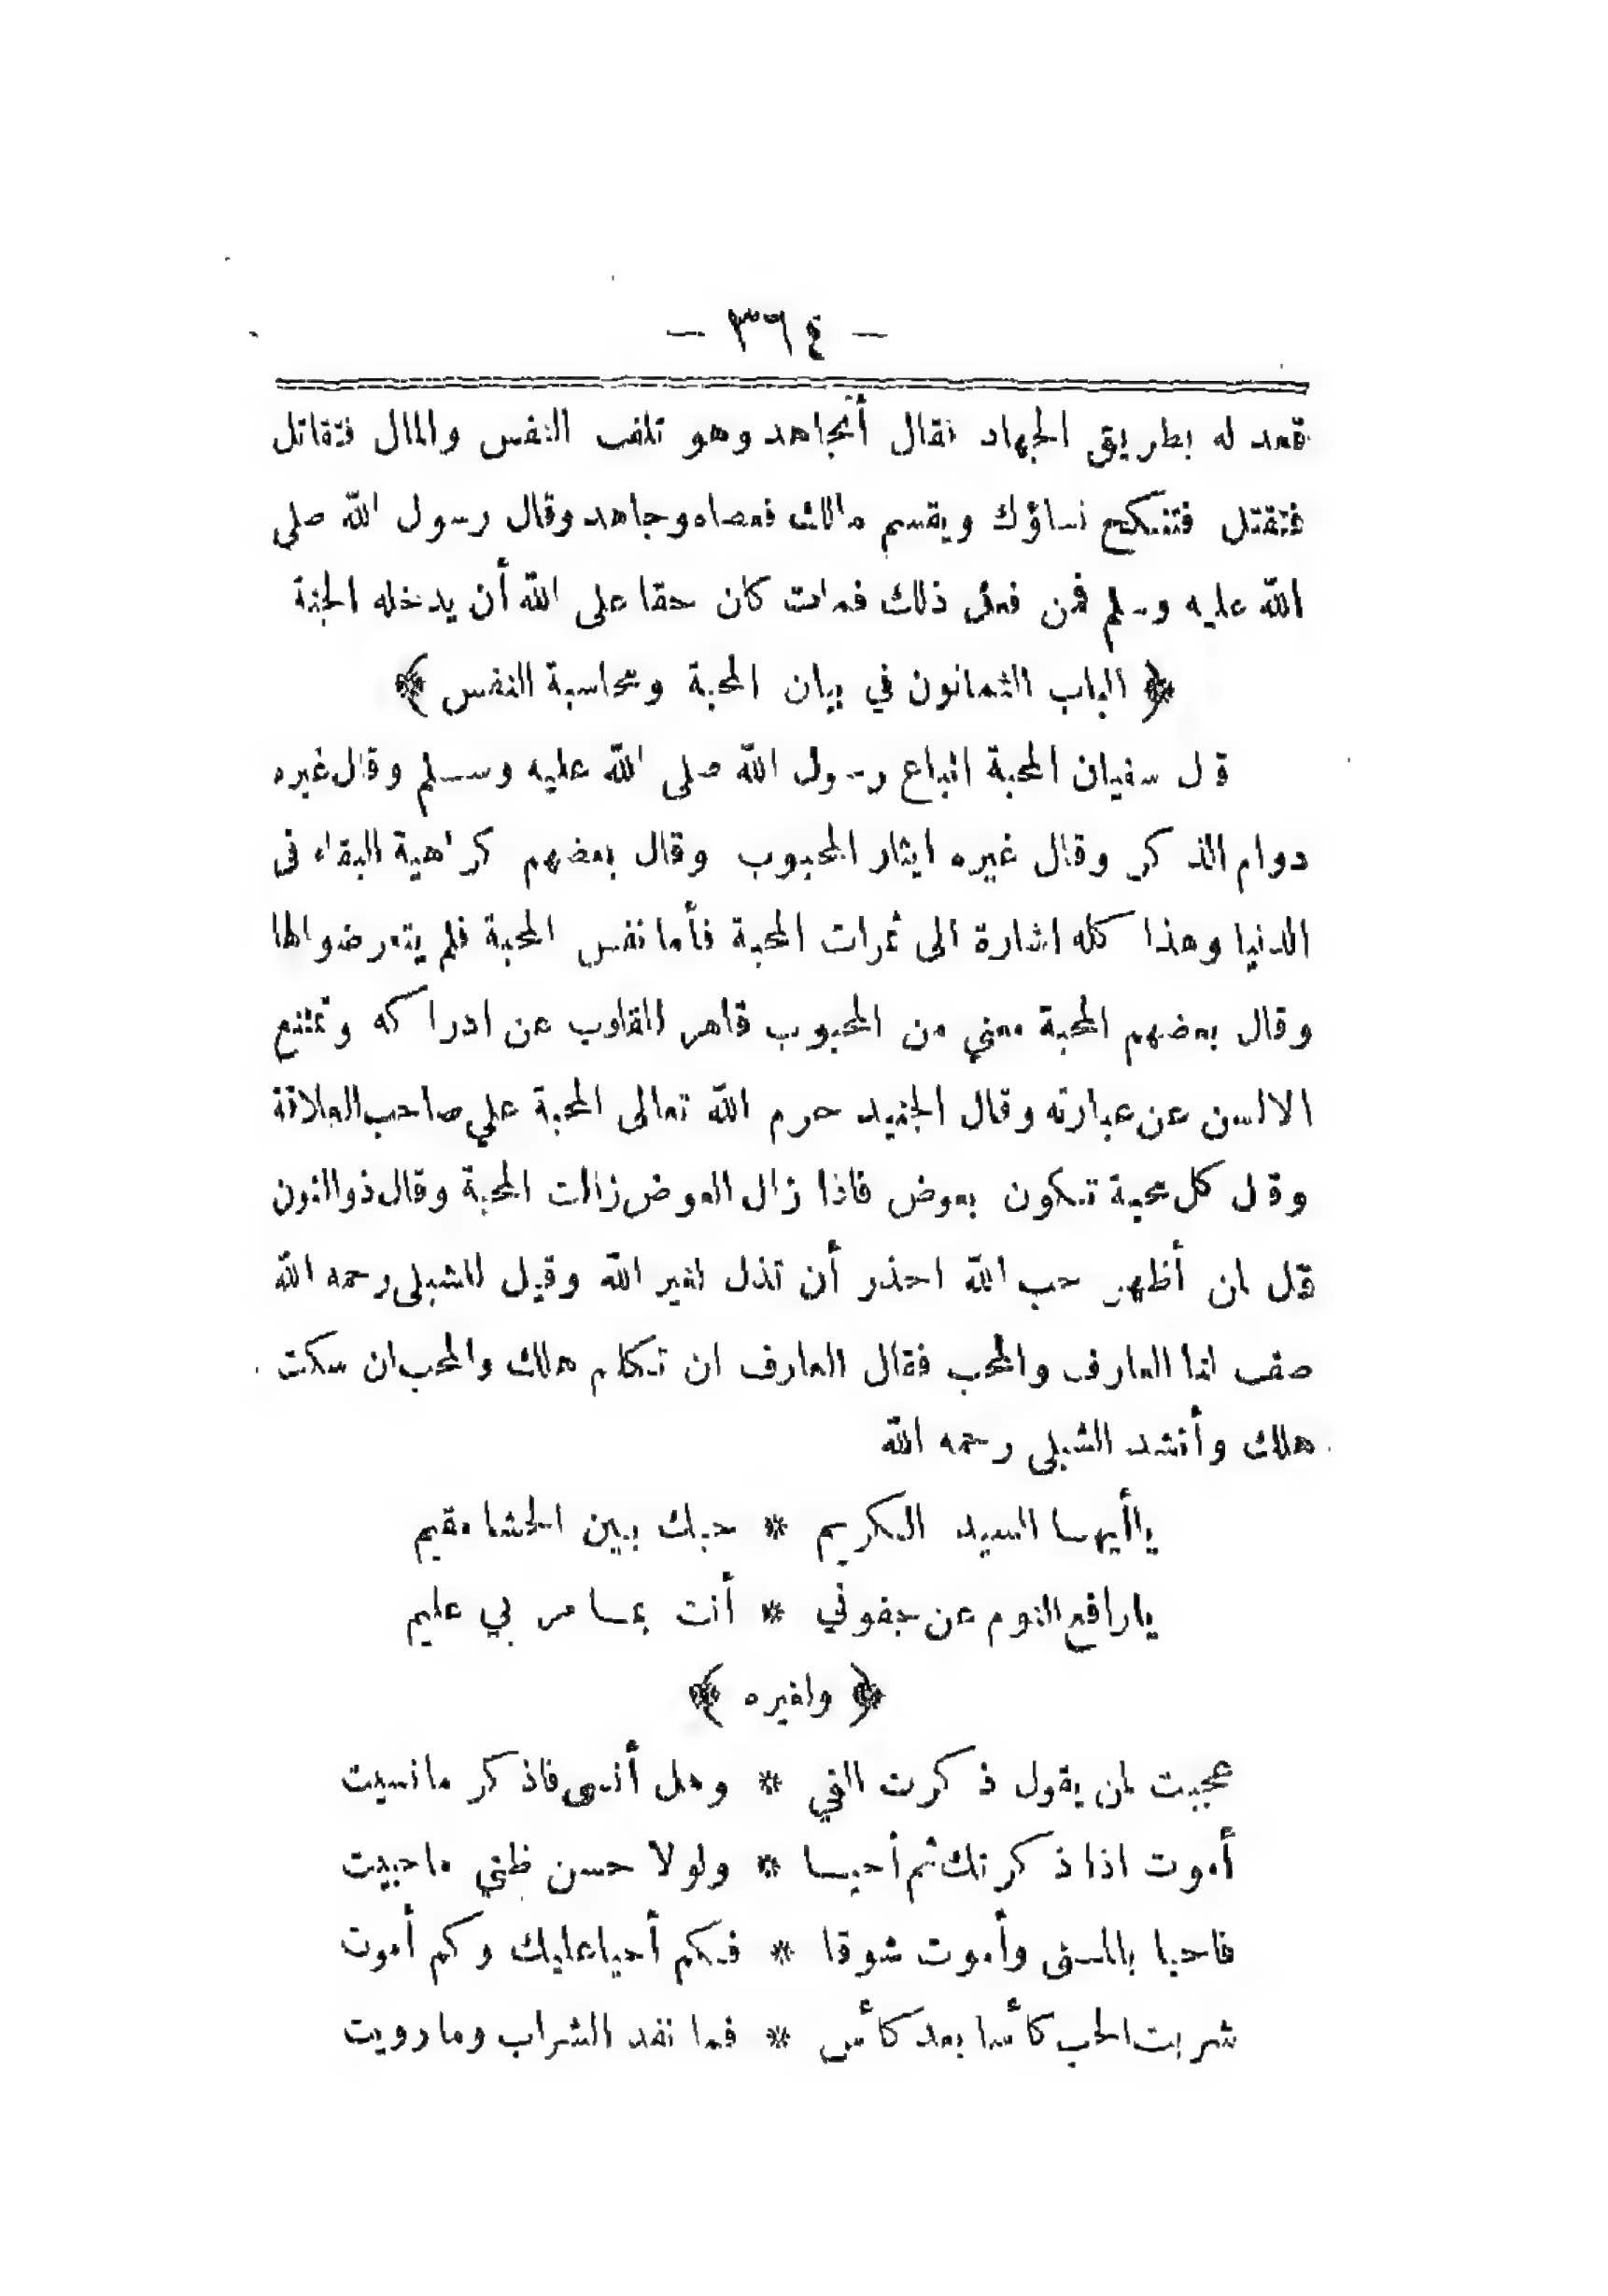 — ٣٦٤ —
قعد له بطريق الجهاد فقال أتجاهد وهو تلف النفس والمال فتقاتل
فتقتل فتنكح نساؤك ويقسم مالك فعصاه وجاهد وقال رسول الله صلى
الله عليه وسلم فمن فعل ذلك فمات كان حقا على الله أن يدخله الجنة
﴿ الباب الثمانون في بيان المحبة ومحاسبة النفس ﴾
قال سفيان المحبة اتباع رسول الله صلى الله عليه وسلم وقال غيره
دوام الذكر وقال غيره ايثار المحبوب وقال بعضهم كراهية البقاء فى
الدنيا وهذا كله اشارة الى ثمرات المحبة فأما نفس المحبة فلم يتعرضوا لها
وقال بعضهم المحبة معني من المحبوب قاهر للقلوب عن ادراكه وتمتنع
الالسن عن عبارته وقال الجنيد حرم الله تعالى المحبة علي صاحب العلاقة
وقال كل محبة تكون بعوض فاذا زال العوض زالت المحبة وقال ذو النون
قل لمن أظهر حب الله احذر أن تذل لغير الله وقيل للشبلى رحمه الله
صف لنا العارف والمحب فقال العارف ان تكلم هلك والمحب ان سكت
هلك وأنشد الشبلى رحمه الله
ياأيها السيد الكريم * حبك بين الحشا مقيم
يارافع النوم عن جفوني * أنت بما مر بي عليم
﴿ ولغيره ﴾
عجبت لمن يقول ذكرت الفي * وهل أنسى فاذكر مانسيت
أموت اذا ذكرتك ثم أحيا * ولولا حسن ظني ماحييت
فاحيا بالمنى وأموت شوقا * فكم أحيا عليك وكم أموت
شربت الحب كأسا بعد كأس * فما نفد الشراب وما رويت